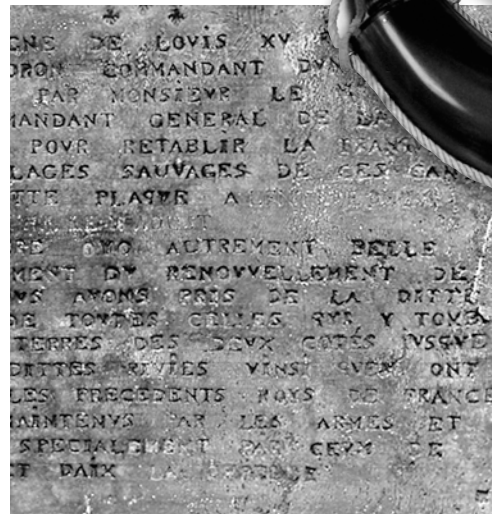 GNE DE LOVIS XV
DRON COMMANDANT DVN
PAR MONSIEVR LE M
MANDANT GENERAL DE LA
POVR RETABLIR LA TRAN
LAGES SAUVAGES DE CES CAN
TTE PLAQVR A
RE OYO AUTREMENT BELLE
MENT DV RENOVVELLEMENT DE
VS AVONS PRIS DE LA DITTE
DE TOVTES CELLES QVR Y TOMB
TERRES DES DEVX COTÉS IVSQVE
DITTES RIVIES VINSI QVEN ONT
LES PRECEDENTS ROYS DE FRANCE
MAINTENVS PAR LES ARMES ET
SPECIALEMENT PAR CEVX DE
ET PAIX LA